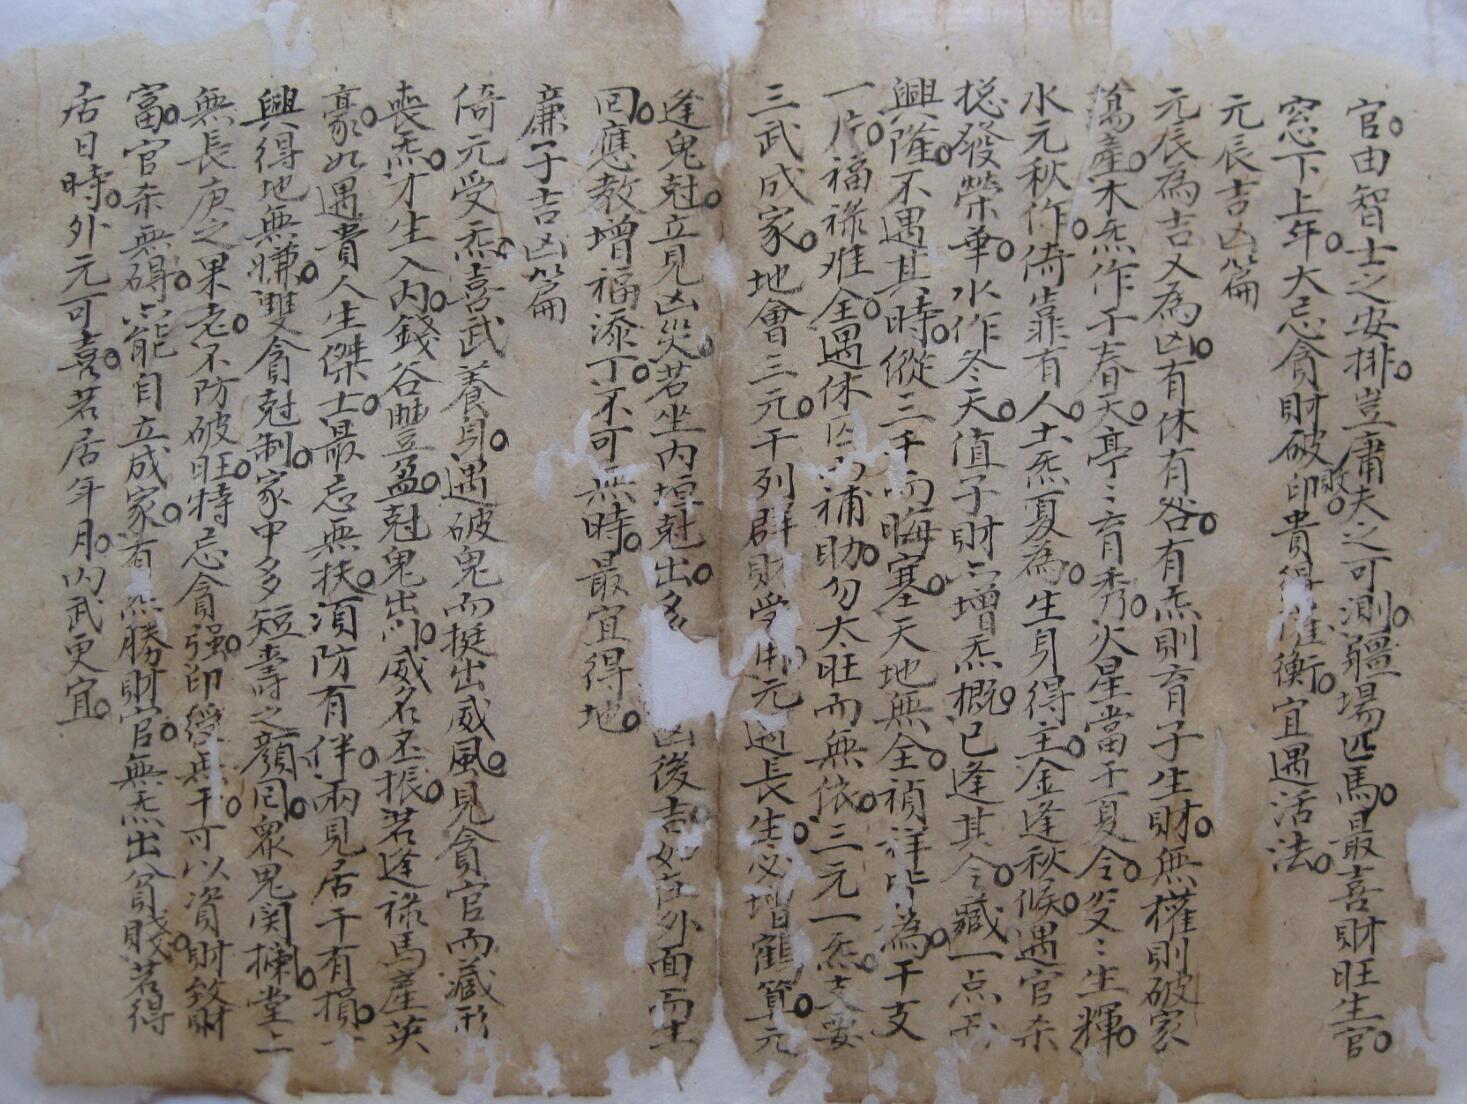 官。由智士之安排。豈庸夫之可測。疆場匹馬。最喜財旺生官。
窓下上年。大忌貪財破印。貴得權衡。宜遇活法。
元辰吉凶篇
元辰為吉又為凶。有休有咎。有炁則育子生財。無權則破家
蕩產。木炁作于春天。亭〻育秀。火星當于夏令。炎〻生輝。
水元秋作。倚靠有人。土炁夏為。生身得主。金逢秋候。遇官杀
捴發榮華。水作冬天。值子財亦增炁概。已逢其令。藏一点而
興隆。不遇其時。縱三千而晦塞。天地無全。禎祥為。干支
一片。福祿难全。遇休囚而補助。勿太旺而無依。三元一炁。支要
三武成家。地會三元。干列群財受用。元遇長生。必增鶴算。元
逢鬼尅。立見凶災。若坐內埠尅出。多凶後吉。如在外面而生
囘。應教增福添丁。不可無時。最宜得地。
廉子吉凶篇
倚元受炁。喜武養身。遇破鬼而挺出威風。見貪官而藏形
喪炁。才生入內。錢谷豐盈。尅鬼出門。威名丕振。若逢祿馬產英
豪。如遇貴人生傑士。最忌無扶。須防有伴。兩見居干有損。一
興得地無嫌。雙貪尅制。家中多短壽之顏囘。眾鬼関攔。堂上
無長庚之果老。不防破旺。特忌貪強。印綬無干。可以資財致
富。官杀無碍。亦能自立成家。若勝財官。無炁出貧賤。若得
居日時。外元可喜。若居年月。內武更宜。